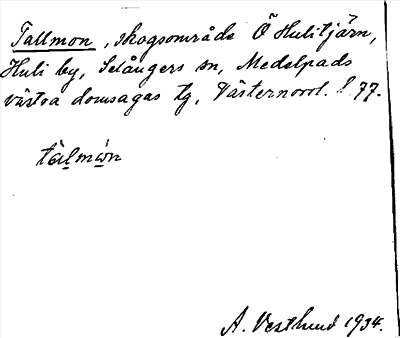 Tallmon, skogsområde Ö Hulitjärn,
Huli by, Selångers sn, Medelpads
västra domsagas tg, Västernorrl. l. 77.
tàlmón
A. Vestlund 1934.